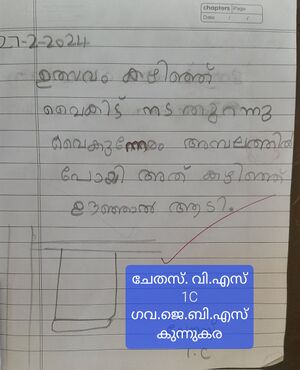 chapters Page
Date / /
27-2-2024
ഉത്സവം കഴിഞ്ഞ്
വൈകിട്ട് നട തുറന്നു
വൈകുന്നേരം അമ്പലത്തിൽ
പോയി അത് കഴിഞ്ഞ്
ഊഞ്ഞാൽ ആടി.
ചേതസ്. വി.എസ്
1C
ഗവ.ജെ.ബി.എസ്
കുന്നുകര
1.C